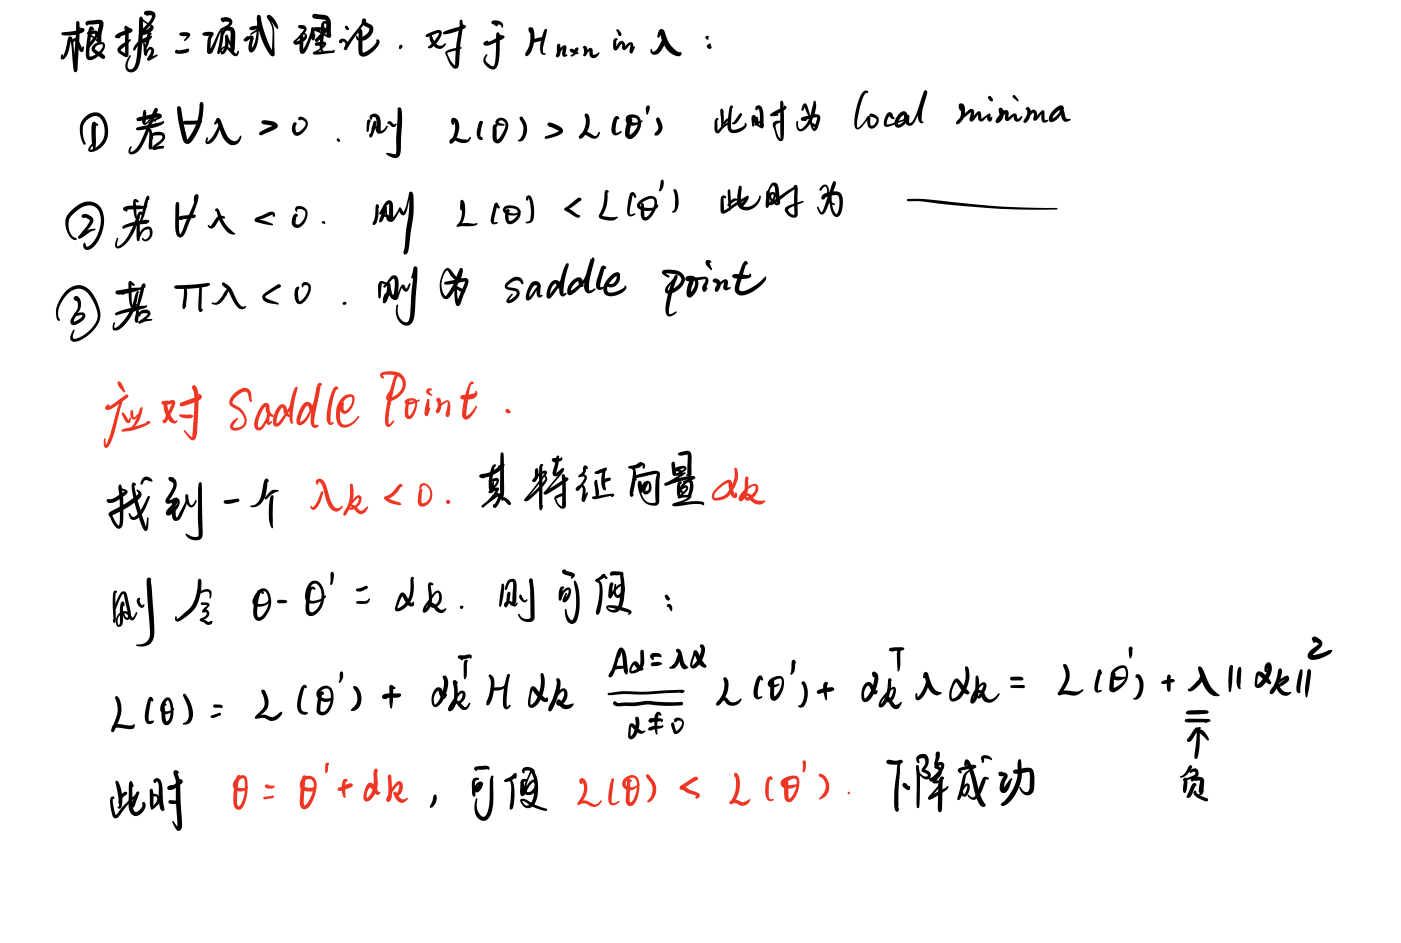 根据二项式理论. 对于 Hn×n in λ :
① 若 ∀λ > 0 . 则 L(θ) > L(θ') 此时为 local minima
② 若 ∀λ < 0 . 则 L(θ) < L(θ') 此时为 ———
③ 若 πλ < 0 . 则为 saddle point
应对 Saddle Point .
找到一个 λk < 0 . 其特征向量 αk
则令 θ - θ' = αk . 则可使 :
L(θ) = L(θ') + αkᵀ H αk \xlongequal[α≠0]{Aα=λα} L(θ') + αkᵀ λ αk = L(θ') + λ ||αk||²
↑
负
此时 θ = θ' + αk , 可使 L(θ) < L(θ') . 下降成功